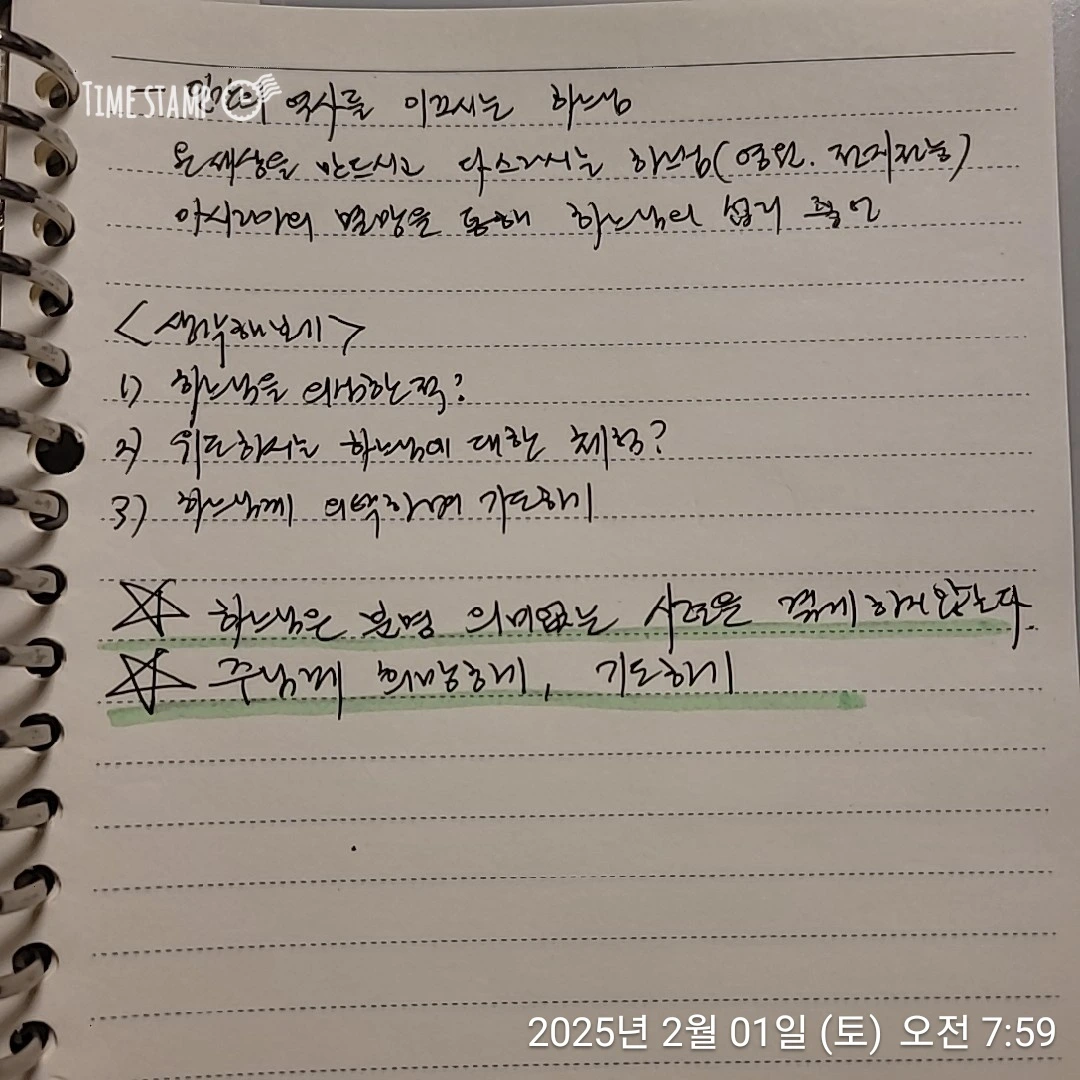 TIMESTAMP
역사를 이끄시는 하느님
온세상을 만드시고 다스리시는 하느님(영원. 전지전능)
아시리아의 멸망을 통해 하느님의 섭리
<생각해보기>
1) 하느님을 의심한적?
2) 위로하시는 하느님에 대한 체험?
3) 하느님께 의탁하며 기도하기
☆ 하느님은 분명 의미없는 시련을 겪게 하지 않는다.
☆ 주님께 희망하기, 기도하기
2025년 2월 01일 (토) 오전 7:59